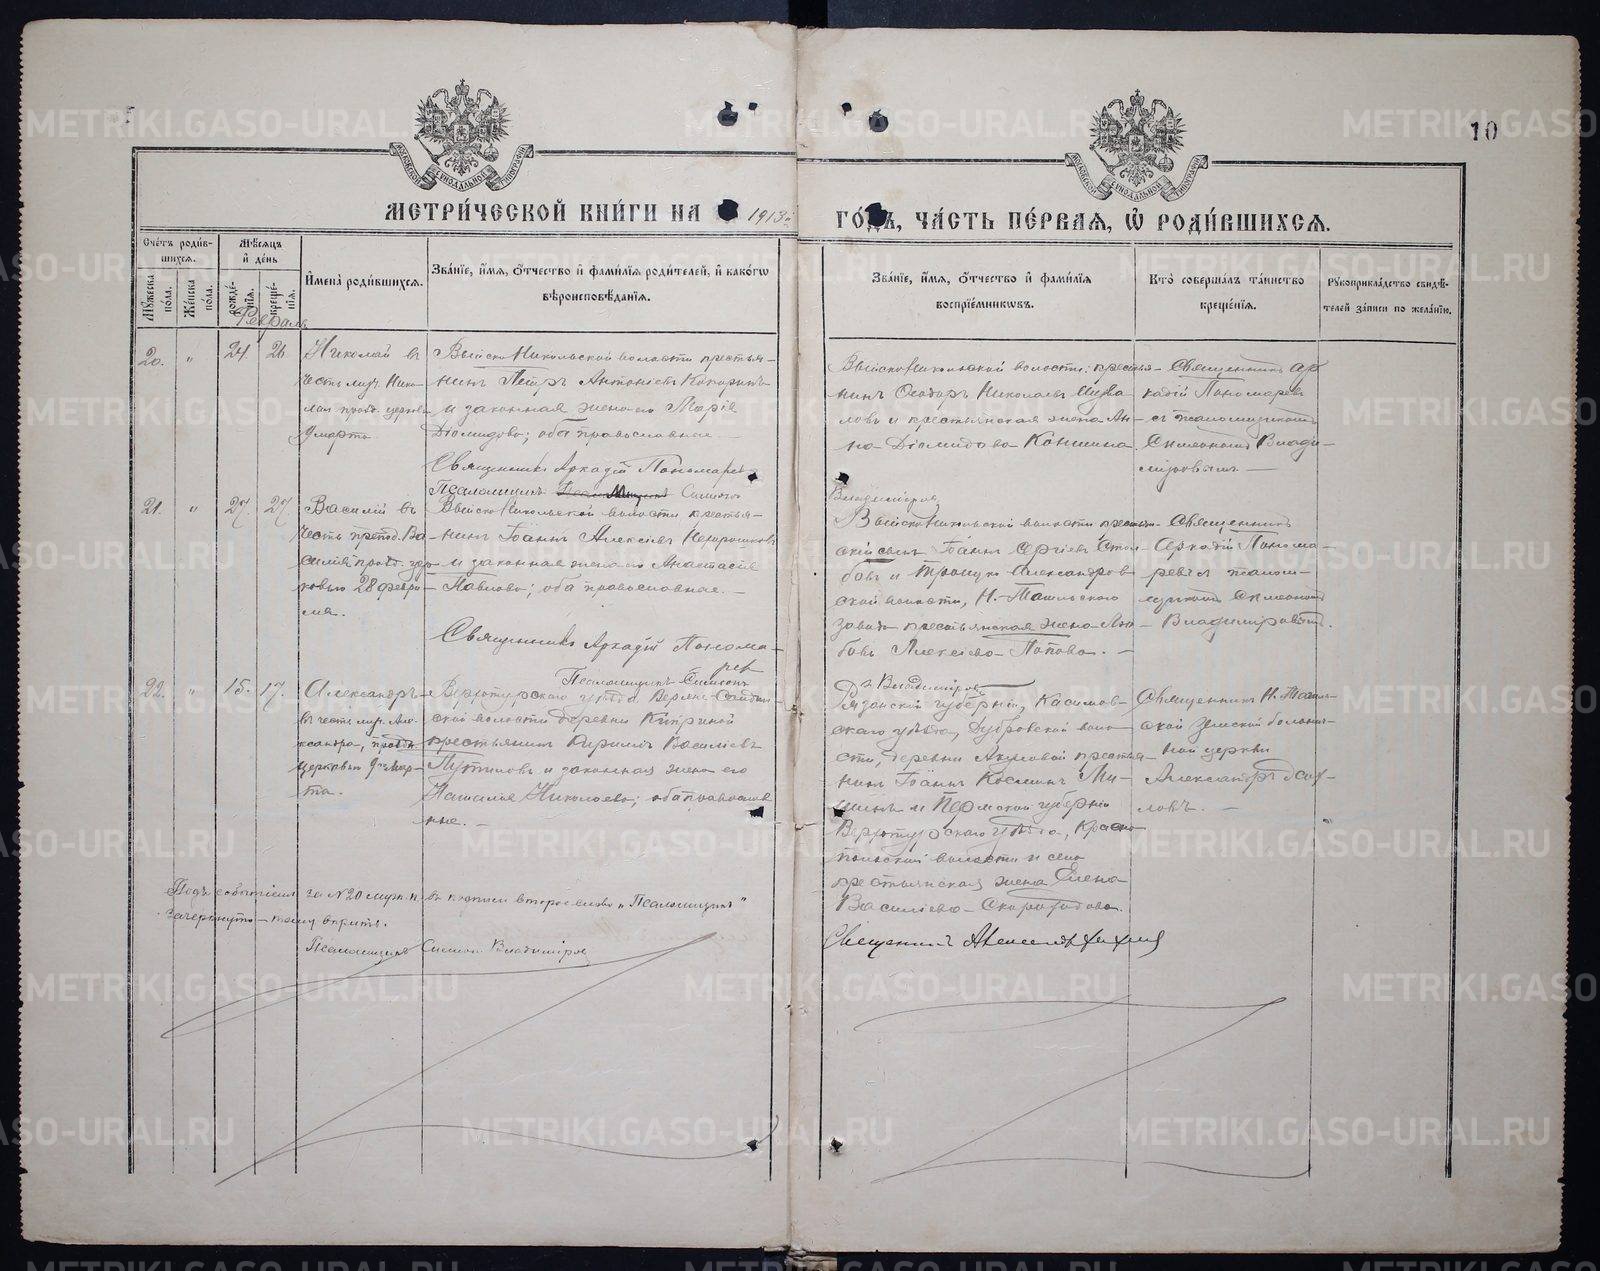 10
МОСКОВСКОЙ СѴНОДАЛЬНОЙ ТИПОГРАФІИ
МОСКОВСКОЙ СѴНОДАЛЬНОЙ ТИПОГРАФІИ
МЕТРИ́ЧЕСКОЙ КНИ́ГИ НА 1913й
ГО́ДЪ, ЧА́СТЬ ПЕ́РВАѦ, Ѡ҆ РОДИ́ВШИХСѦ.
Счéтъ роди́вшихсѧ.
Мѣ́сѧцъ и҆ де́нь
Мꙋ́жеска пола.
Же́нска по́ла.
рожде́нїѧ.
креще́нїѧ.
И҆мена̀ роди́вшихсѧ.
Зва́нїе, и҆́мѧ, ѻ҆́тчество и҆ фами́лїѧ роди́телей, и҆ како́гѡ
вѣроисповѣ́данїѧ.
Зва́нїе, и҆́мѧ, ѻ҆́тчество и҆ фами́лїѧ
воспрїе́мникѡвъ.
Кто̀ соверша́лъ та́инство
креще́нїѧ.
Рꙋкоприкла́дство свидѣ́-
телей за́писи по жела́нїю.
Февраль
20. " 24 26
Николай въ
честь муч. Нико-
лая празд. церковью
9 марта
Выйско-Никольской волости крестья-
нинъ Петръ Антоніевъ
и законная жена его Марія
Діомидова; оба православные. —
Священникъ Аркадій Пономаревъ
Псаломщикъ Симеонъ
Владиміровъ
Выйско-Никольской волости: крестья-
нинъ Ѳеодоръ Николаевъ
и крестьянская жена Ан-
на Діомидова Коншина
Священникъ Ар-
кадій Пономаревъ
съ псаломщикомъ
Симеономъ Влади-
міровымъ. —
21. " 27. 27.
Василій въ
честь препод. Ва-
силія празд. цер-
ковью 28 февра-
ля.
Выйско-Никольской волости крестья-
нинъ Іоаннъ Алексіевъ
и законная жена его Анастасія
Павлова; оба православные. —
Священникъ Аркадій Понома-
ревъ
Псаломщикъ Симеонъ
Владиміровъ
Выйско-Никольской волости крестьян-
скій сынъ Іоаннъ Сергіевъ Стол-
бовъ и Троицко-Александров-
ской волости, Н.-Тагильскаго
завода крестьянская жена Лю-
бовь Алексіева Попова. —
Священникъ
Аркадій Понома-
ревъ съ псалом-
щикомъ Симеономъ
Владиміровымъ.
22. " 15. 17.
Александръ
въ честь муч. Але-
ксандра, праздн.
церковью 9го Мар-
та.
Верхотурскаго уѣзда Верхне-Салдин-
ской волости деревни Киприной
крестьянинъ Кириллъ Василіевъ
Путиловъ и законная жена его
Наталія Николаева; оба православ-
ные. —
Рязанской губерніи, Касимов-
скаго уѣзда, Дубровской воло-
сти, деревни Акуловой крестья-
нинъ Іоаннъ Косминъ Ми-
шинъ и Пермской губерніи
Верхотурскаго уѣзда, Красно-
польской волости и села
крестьянская жена Елена
Василіева Скороходова.
Священникъ Н. Тагиль-
ской земской больнич-
ной церкви
Александръ
Священникъ Александръ
Подъ событіемъ за № 20 муж. п. въ подписи второе слово „Псаломщикъ"
зачеркнуто — тому вѣрить.
Псаломщикъ Симеонъ Владиміровъ
METRIKI.GASO-URAL.RU